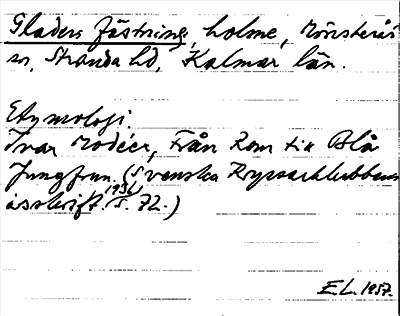 Gladers fästning, holme, Mönsterås
sn, Stranda hd, Kalmar län.
Etymologi.
Ivar Modéer, Från Rom till Blå
Jungfrun. (Svenska Kryssarklubbens
årsskrift 1936, s. 72.)
E L. 1957.